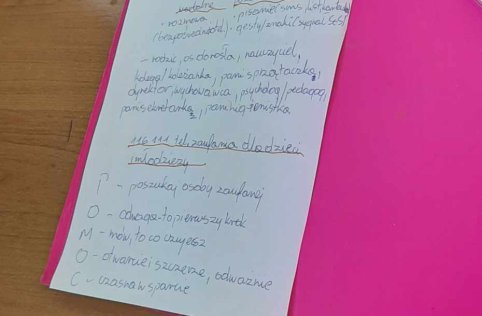 ustalone
- rozmowa, - pisanie/sms/
(bezpośredniość). - gesty/znaki/sygnał SOS/
- rodzic, os. dorosła, nauczyciel,
kolega/koleżanka, pani sprzątaczka,
dyrektor/wychowawca, psycholog/pedagog,
pani sekretarka, pani higienistka
116 111 tel. zaufania dla dzieci
i młodzieży
P - poszukaj osoby zaufanej
O - odwaga to pierwszy krok
M - mów, to co czujesz
O - otwarcie i szczerze, odważnie
C - czas na wsparcie